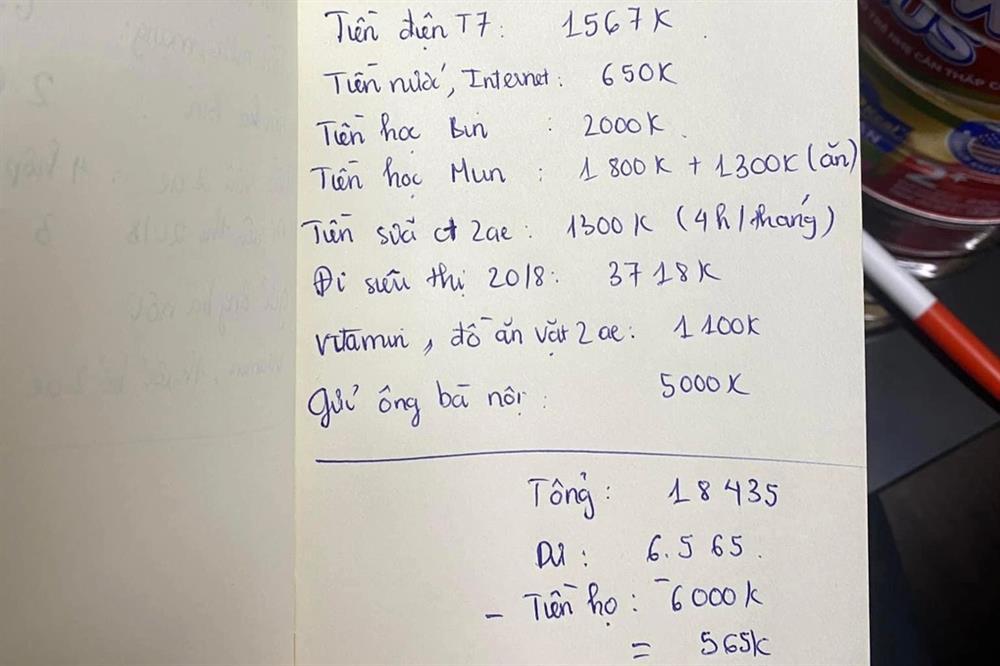 Tiền điện T7: 1567K
Tiền nước, Internet: 650K
Tiền học Bin : 2000K
Tiền học Mun : 1 800K + 1300K (ăn)
Tiền sữa ct 2ae: 1300K (4h/tháng)
Đi siêu thị 20/8: 3718K
vitamin, đồ ăn vặt 2 ae: 1 100K
gửi ông bà nội: 5000K
Tổng: 18 435
Dư: 6.565.
- Tiền họ: -6000K
= 565k
US
CÂN THẤP C
2+